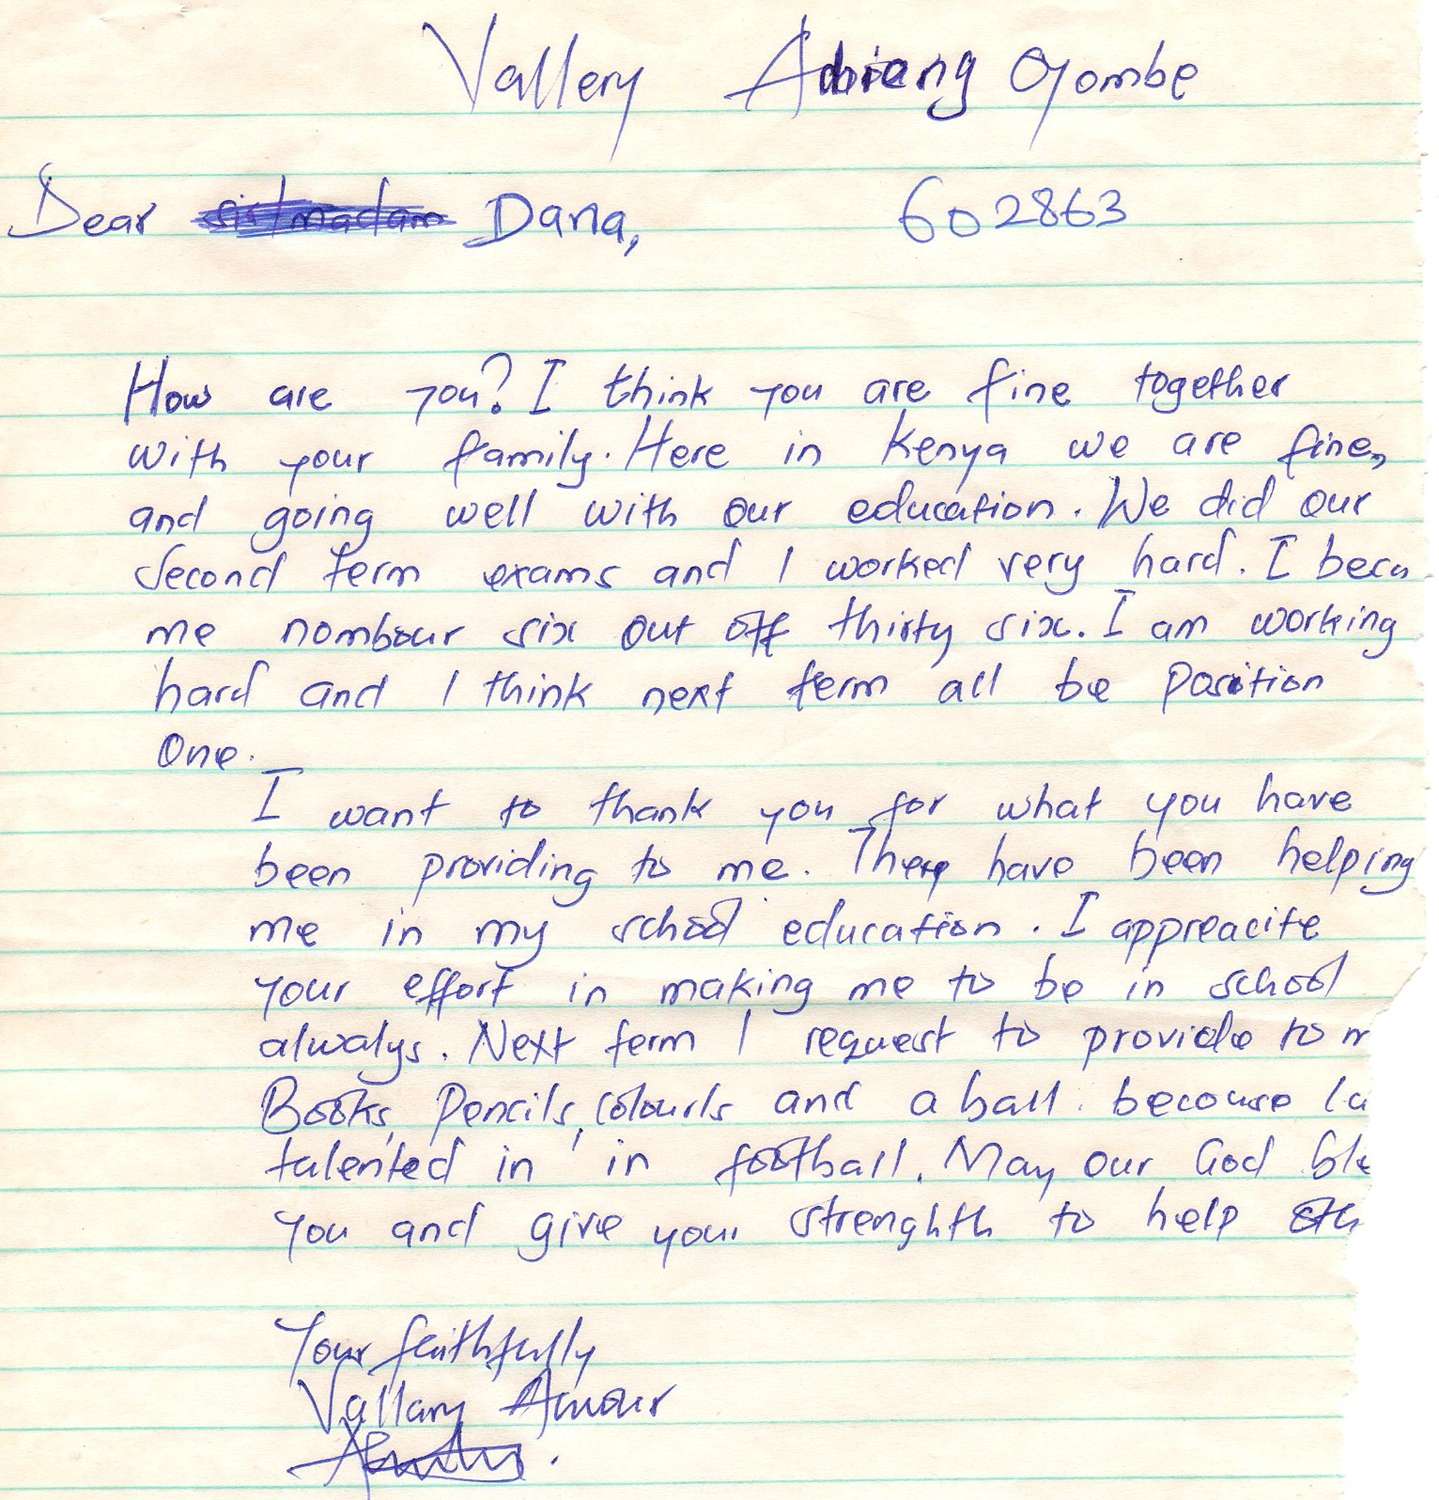 Vallery Oyombe
Dear sir/madam Dana, 602863
How are you? I think you are fine together
with your family. Here in Kenya we are fine,
and going well with our education. We did our
second term exams and I worked very hard. I beca
me nombour six out off thirty six. I am working
hard and I think next term all be position
One.
I want to thank you for what you have
been providing to me. They have been helping
me in my school education. I appreacite
your effort in making me to be in school
alwalys. Next term I request to provide to m
Books, Pencils, Colourls and a ball. becouse Ia
talented in in football. May our God ble
you and give your strenghth to help oth
Your faithfully
Vallary Amour